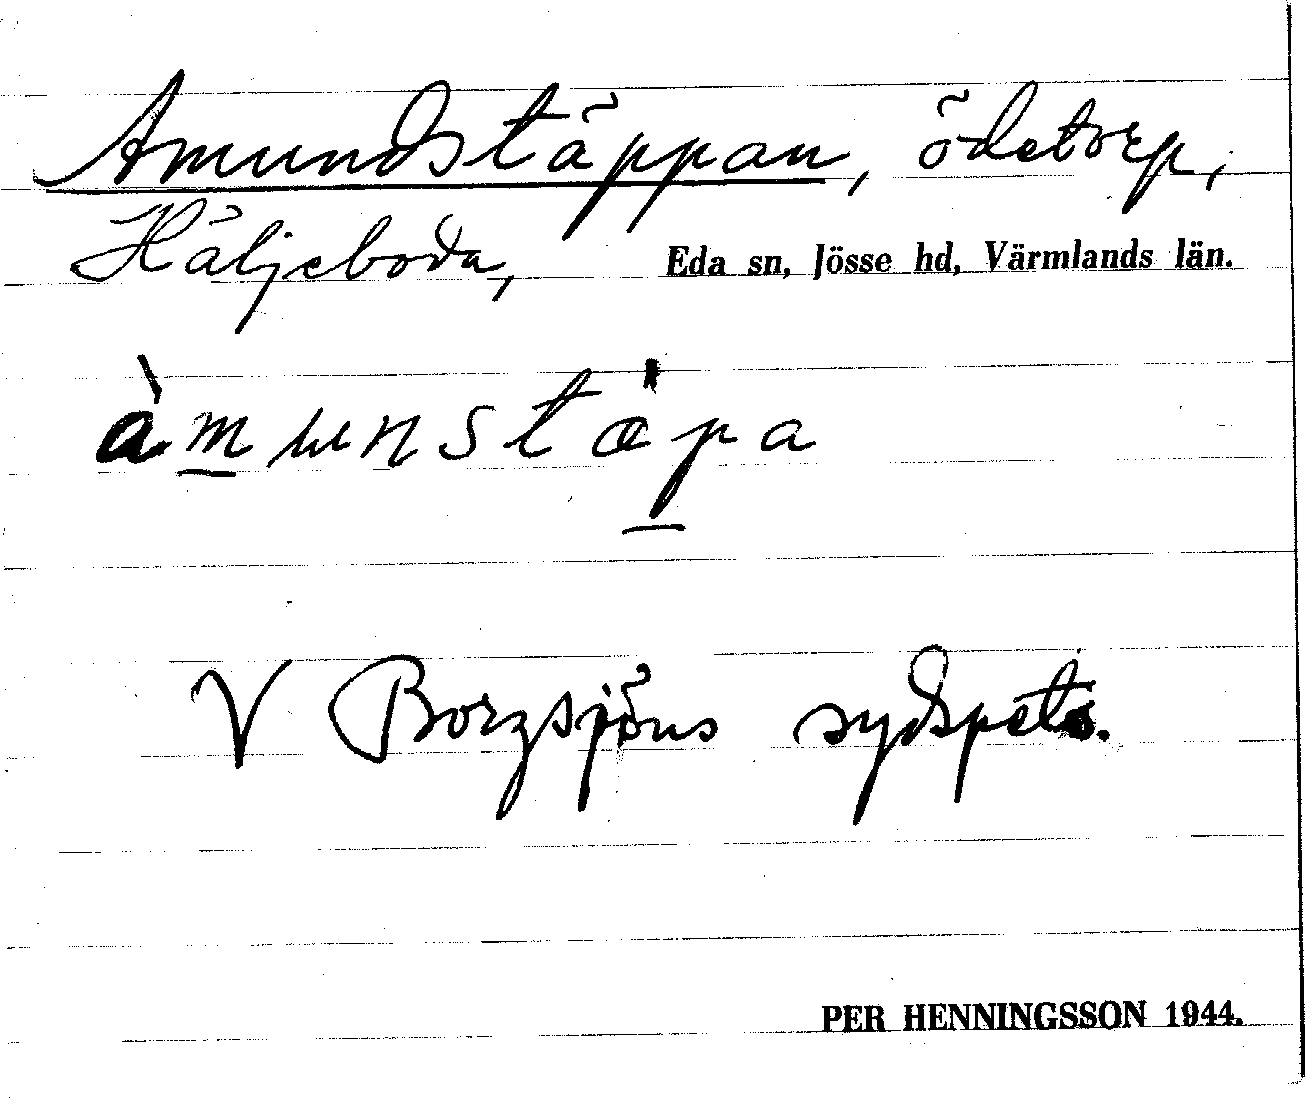 Amundstäppan, ödetorp,
Häljeboda, Eda sn, Jösse hd, Värmlands län.
àmunstæ̀pa
V Borgsjöns sydspets.
PER HENNINGSSON 1944.